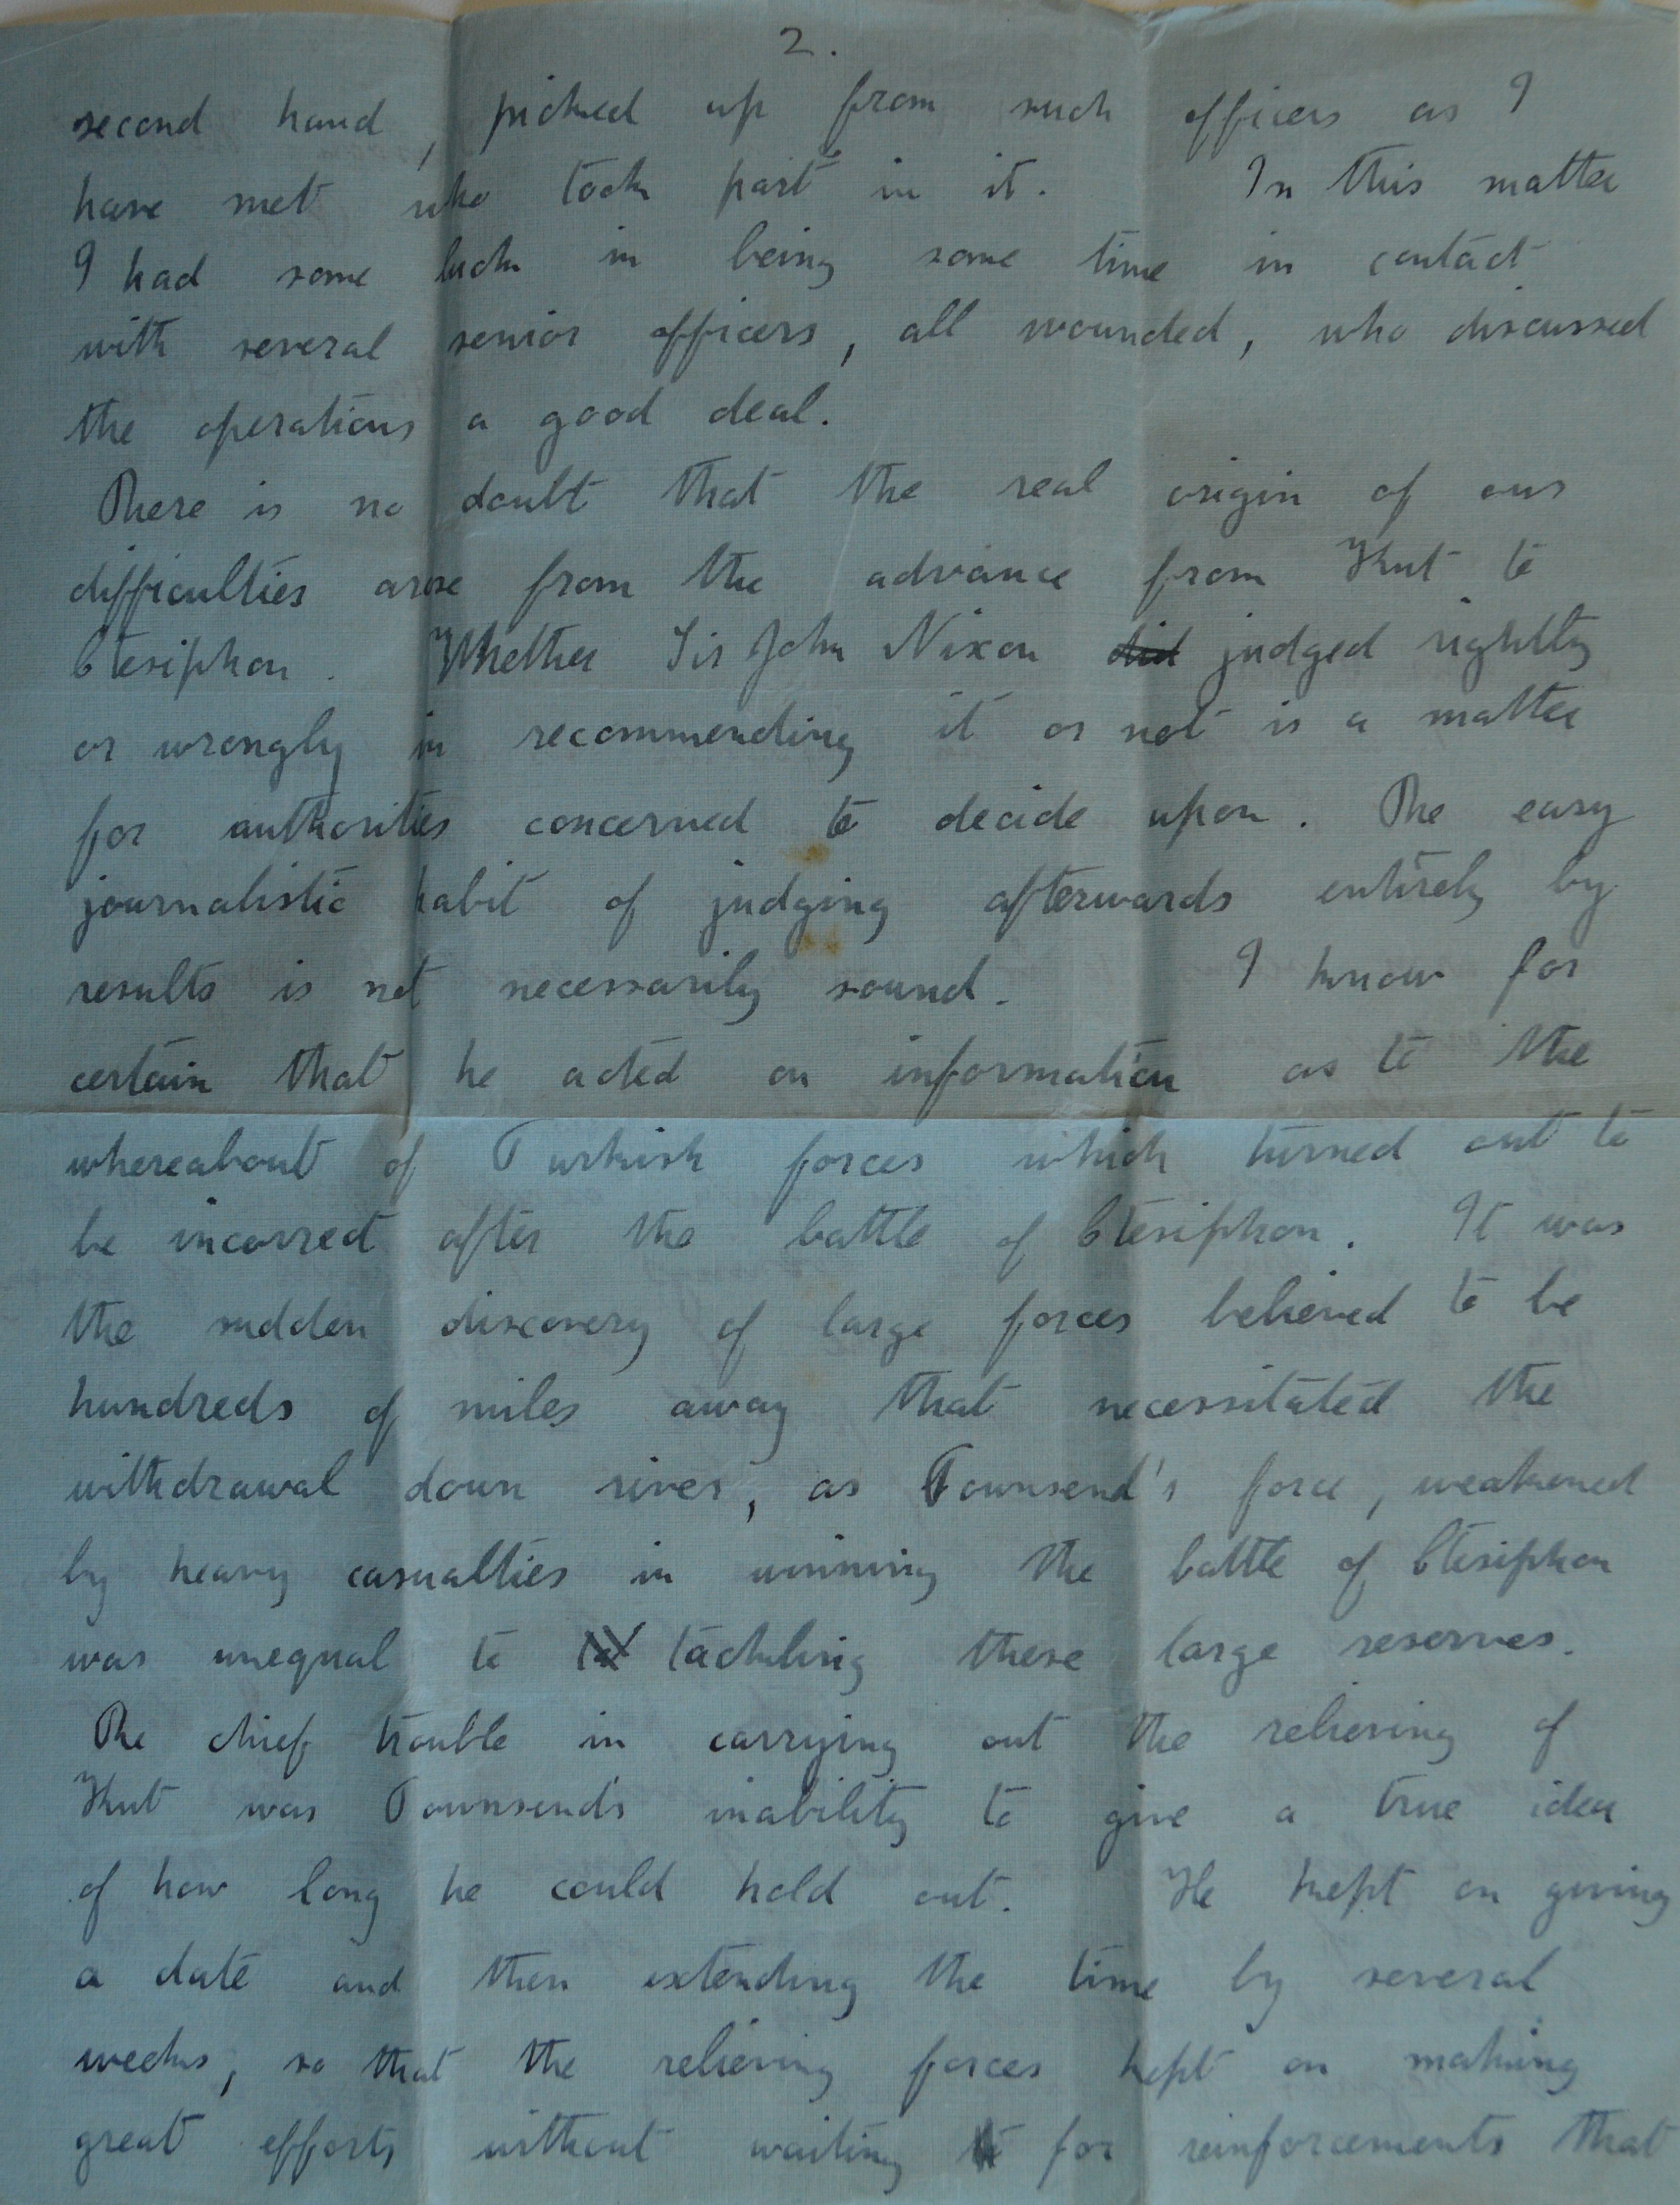 2.
second hand, picked up from such officers as I
have met who took part in it. In this matter
I had some luck in being some time in contact
with several senior officers, all wounded, who discussed
the operations a good deal.
There is no doubt that the real origin of our
difficulties arose from the advance from Kut to
Ctesiphon. Whether Sir John Nixon did judged rightly
or wrongly in recommending it or not is a matter
for authorities concerned to decide upon. The easy
journalistic habit of judging afterwards entirely by
results is not necessarily sound. I know for
certain that he acted on information as to the
whereabout of Turkish forces which turned out to
be incorrect after the battle of Ctesiphon. It was
the sudden discovery of large forces believed to be
hundreds of miles away that necessitated the
withdrawal down river, as Townsend's force, weakened
by heavy casualties in winning the battle of Ctesiphon
was unequal to tackling these large reserves.
The chief trouble in carrying out the relieving of
Kut was Townsend's inability to give a true idea
of how long he could hold out. He kept on giving
a date and then extending the time by several
weeks, so that the relieving forces kept on making
great efforts without waiting for reinforcements that